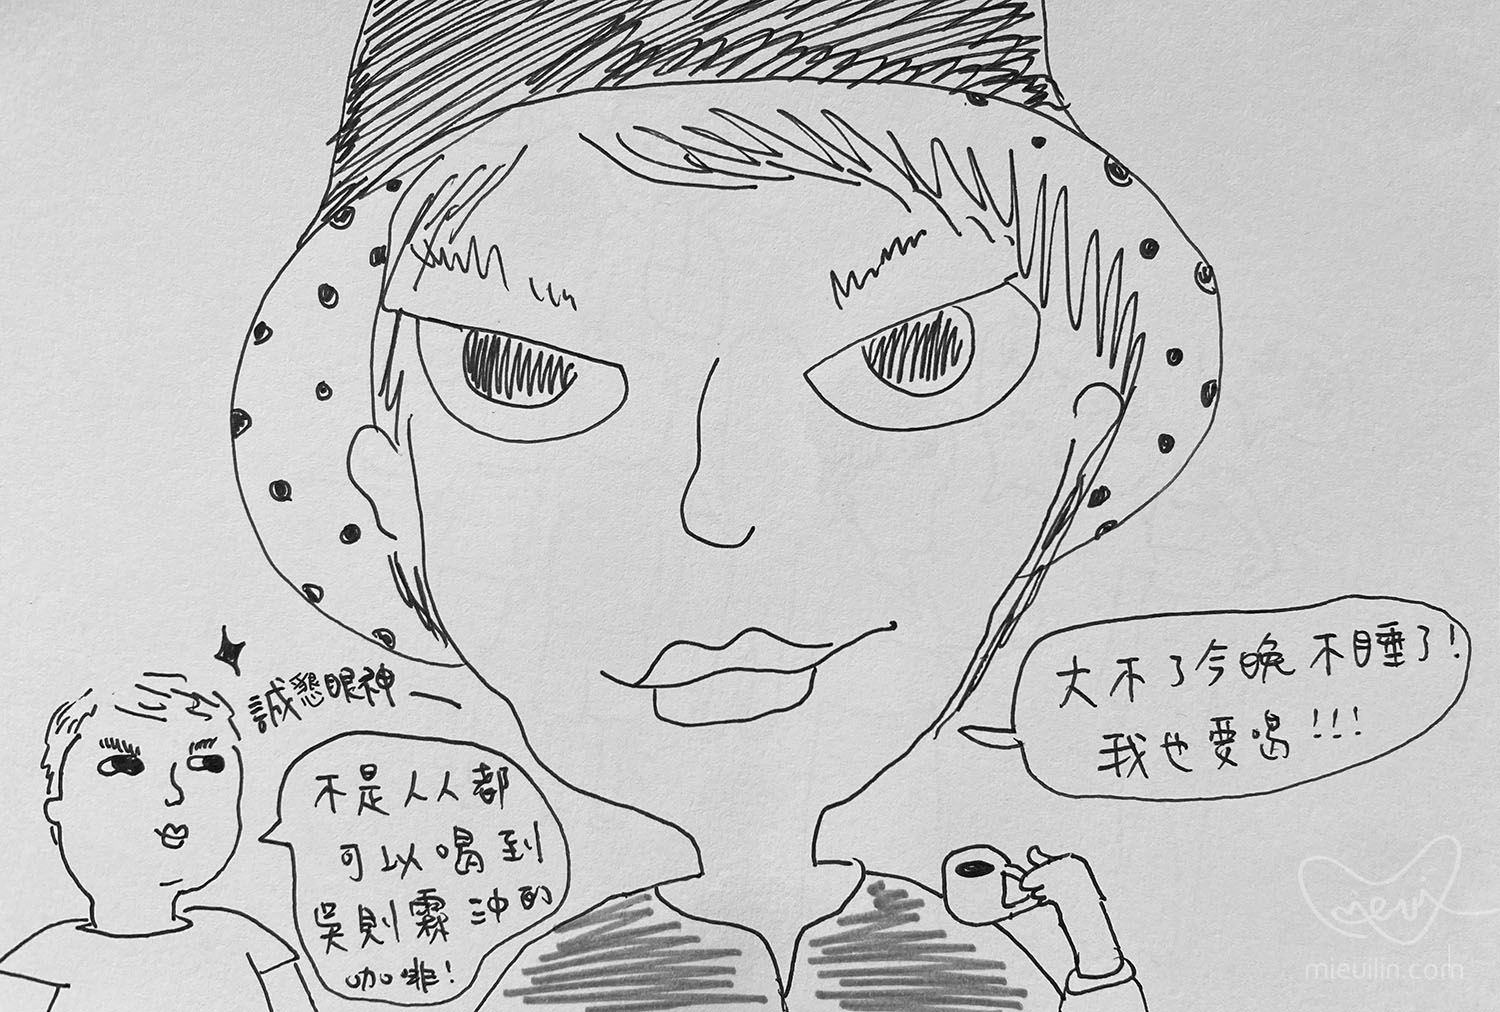 誠懇眼神
不是人人都
可以喝到
吳則霖沖的
咖啡!
大不了今晚不睡了!
我也要喝!!!
mieuilin.com